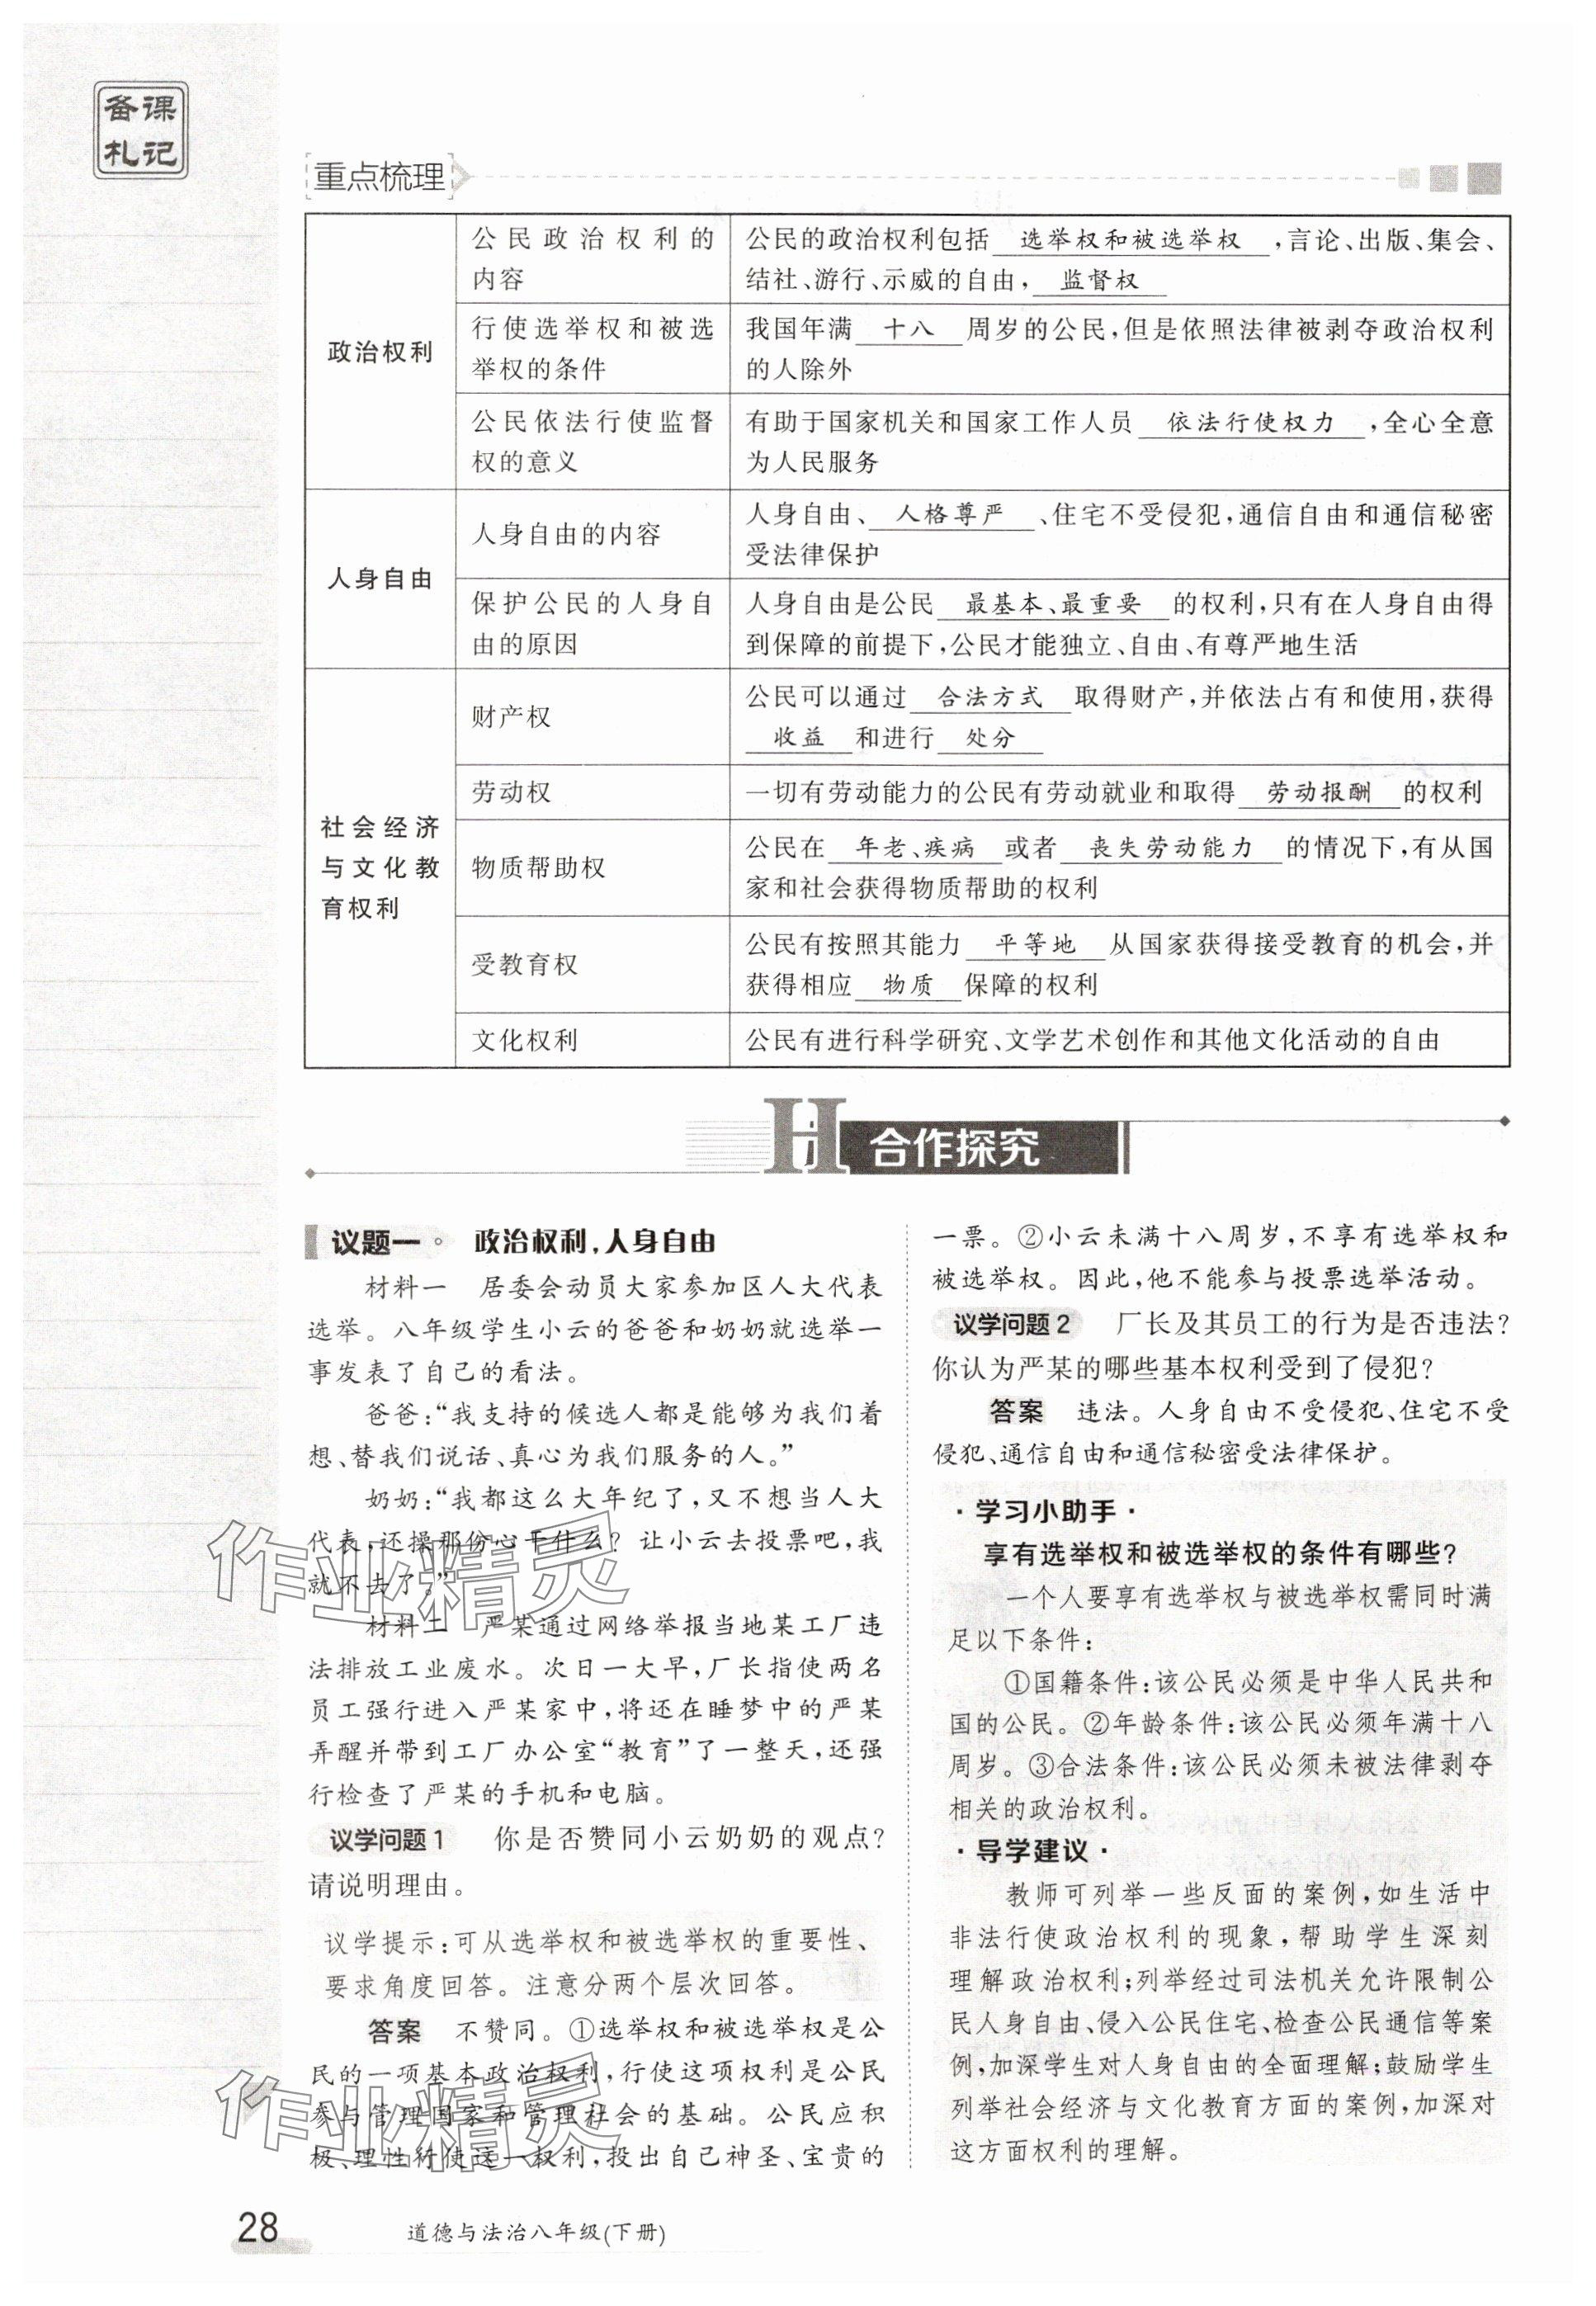 备课
札记
重点梳理
政治权利
公民政治权利的
内容
公民的政治权利包括 选举权和被选举权 ,言论、出版、集会、
结社、游行、示威的自由, 监督权
行使选举权和被选
举权的条件
我国年满 十八 周岁的公民,但是依照法律被剥夺政治权利
的人除外
公民依法行使监督
权的意义
有助于国家机关和国家工作人员 依法行使权力 ,全心全意
为人民服务
人身自由
人身自由的内容
人身自由、 人格尊严 、住宅不受侵犯,通信自由和通信秘密
受法律保护
保护公民的人身自
由的原因
人身自由是公民 最基本、最重要 的权利,只有在人身自由得
到保障的前提下,公民才能独立、自由、有尊严地生活
社会经济
与文化教
育权利
财产权
公民可以通过 合法方式 取得财产,并依法占有和使用,获得
收益 和进行 处分
劳动权
一切有劳动能力的公民有劳动就业和取得 劳动报酬 的权利
物质帮助权
公民在 年老、疾病 或者 丧失劳动能力 的情况下,有从国
家和社会获得物质帮助的权利
受教育权
公民有按照其能力 平等地 从国家获得接受教育的机会,并
获得相应 物质 保障的权利
文化权利
公民有进行科学研究、文学艺术创作和其他文化活动的自由
H 合作探究
议题一 政治权利,人身自由
材料一 居委会动员大家参加区人大代表
选举。八年级学生小云的爸爸和奶奶就选举一
事发表了自己的看法。
爸爸:“我支持的候选人都是能够为我们着
想、替我们说话、真心为我们服务的人。”
奶奶:“我都这么大年纪了,又不想当人大
代表,还操那份心干什么? 让小云去投票吧,我
就不去了。”
材料二 严某通过网络举报当地某工厂违
法排放工业废水。次日一大早,厂长指使两名
员工强行进入严某家中,将还在睡梦中的严某
弄醒并带到工厂办公室“教育”了一整天,还强
行检查了严某的手机和电脑。
议学问题1 你是否赞同小云奶奶的观点?
请说明理由。
议学提示:可从选举权和被选举权的重要性、
要求角度回答。注意分两个层次回答。
答案 不赞同。①选举权和被选举权是公
民的一项基本政治权利,行使这项权利是公民
参与管理国家和管理社会的基础。公民应积
极、理性行使这一权利,投出自己神圣、宝贵的
一票。②小云未满十八周岁,不享有选举权和
被选举权。因此,他不能参与投票选举活动。
议学问题2 厂长及其员工的行为是否违法?
你认为严某的哪些基本权利受到了侵犯?
答案 违法。人身自由不受侵犯、住宅不受
侵犯、通信自由和通信秘密受法律保护。
·学习小助手·
享有选举权和被选举权的条件有哪些?
一个人要享有选举权与被选举权需同时满
足以下条件:
①国籍条件:该公民必须是中华人民共和
国的公民。②年龄条件:该公民必须年满十八
周岁。③合法条件:该公民必须未被法律剥夺
相关的政治权利。
·导学建议·
教师可列举一些反面的案例,如生活中
非法行使政治权利的现象,帮助学生深刻
理解政治权利;列举经过司法机关允许限制公
民人身自由、侵入公民住宅、检查公民通信等案
例,加深学生对人身自由的全面理解;鼓励学生
列举社会经济与文化教育方面的案例,加深对
这方面权利的理解。
作业精灵
作业精灵
28
道德与法治八年级(下册)